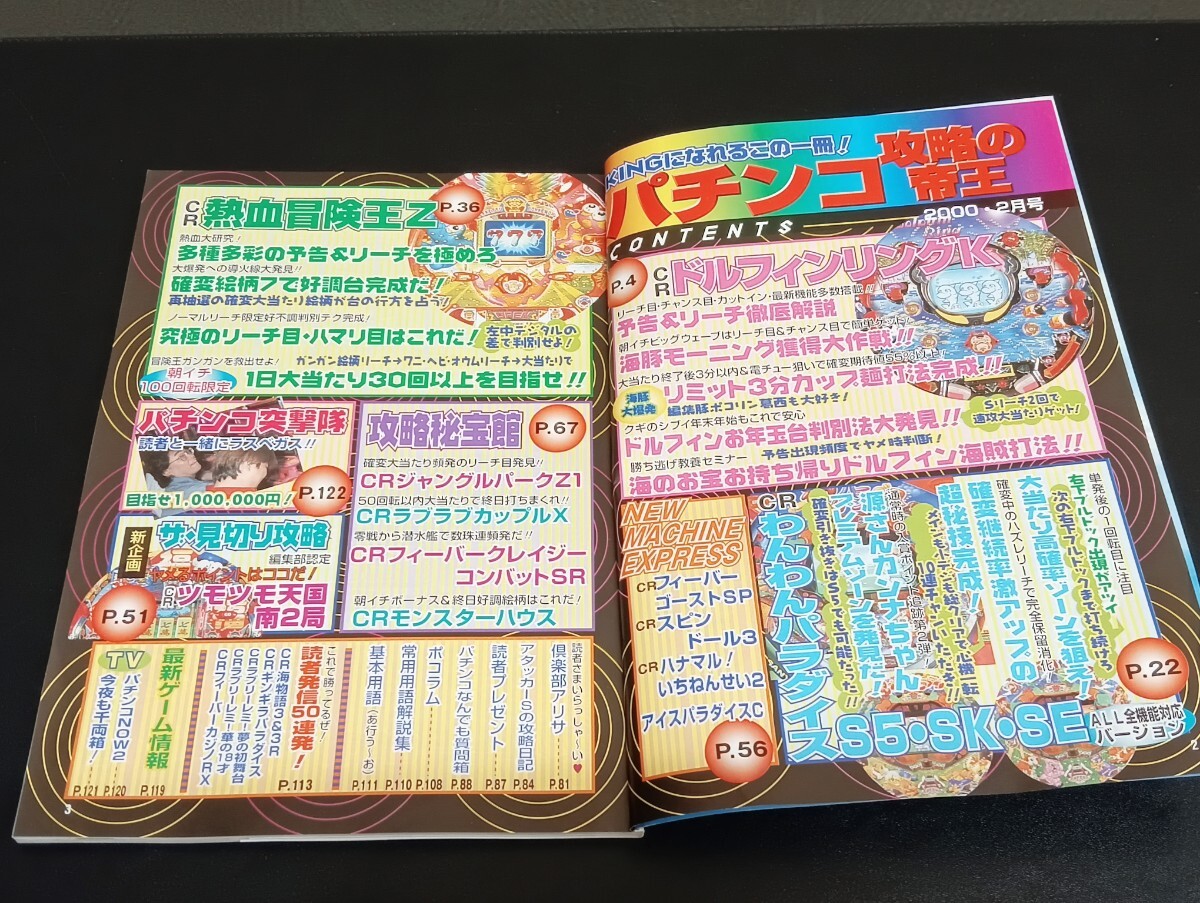 KINGになれるこの一冊!
パチンコ攻略の帝王
2000・2月号
CONTENTS
P.4
CRドルフィンリングK
リーチ目・チャンス目・カットイン・最新機能多数搭載!!
予告&リーチ徹底解説
朝イチビッグウェーブはリーチ目&チャンス目で簡単ゲット!
海豚モーニング獲得大作戦!!
大当たり終了後3分以内&電チュー狙いで確変期待値55%以上!
海豚大爆発
リミット3分カップ麺打法完成!!
編集豚ポコリン葛西も大好き!
Sリーチ2回で
速攻大当たりゲット!
クギのシブイ年末年始もこれで安心
ドルフィンお年玉台判別法大発見!!
勝ち逃げ教養セミナー 予告出現頻度でヤメ時判断!
海のお宝お持ち帰りドルフィン海賊打法!!
NEW
MACHINE
EXPRESS
CRフィーバー
ゴーストSP
CRスピン
ドール3
CRハナマル!
いちねんせい2
アイスパラダイスC
P.56
単発後の1回転目に注目
右下フルドック出現がアツイ
次の右下フルドックまで打ち続けろ
大当たり高確率ゾーンを狙え!
確変中のハズレリーチで完全保留消化
確変継続率激アップの
超秘技完成!
通常時の入賞ポイント追跡第2弾
源さんカンナちゃん
プレミアムゾーンを発見だ!
確変引き抜きはらくても可能だった!!
CRわんわんパラダイス
S5・SK・SE
ALL全機能対応
バージョン
P.22
2
CR熱血冒険王Z
P.36
熱血大研究!
多種多彩の予告&リーチを極めろ
大爆発への導火線大発見!!
確変絵柄7で好調台完成だ!
再抽選の確変大当たり絵柄が台の行方を占う!
ノーマルリーチ限定好不調判別テク完成!
究極のリーチ目・ハマリ目はこれだ!
左中デジタルの
差で判別せよ!
冒険王ガンガンを救出せよ! ガンガン絵柄リーチ→ワニ・ヘビ・オウムリーチ→大当たりで
朝イチ
100回転限定
1日大当たり30回以上を目指せ!!
パチンコ突撃隊
読者と一緒にラスベガス!!
目指せ1,000,000円!
P.122
新企画
ザ・見切り攻略
編集部認定
ヤメるポイントはココだ!
CRツモツモ天国
南2局
P.51
攻略秘宝館
P.67
確変大当たり頻発のリーチ目発見!!
CRジャングルパークZ1
50回転以内大当たりで終日打ちまくれ!!
CRラブラブカップルX
零戦から潜水艦で数珠連頻発だ!!
CRフィーバークレイジー
コンバットSR
朝イチボーナス&終日好調絵柄はこれだ!
CRモンスターハウス
読者さまいらっしゃ~い♥
倶楽部アリサ P.81
アタッカーSの攻略日記 P.84
読者プレゼント P.87
パチンコなんでも質問箱 P.88
ポコラム P.108
常用用語解説集 P.110
基本用語(あ行う~お) P.111
これで勝ってるぜ!
読者発信50連発! P.113
CR海物語3&3R
CRギンギラパラダイス
CRラブリーレミー!夢の初舞台
CRフィーバーカジノRX
最新ゲーム情報 P.119
TV
パチンコNOW2 P.120
今夜も千両箱! P.121
3